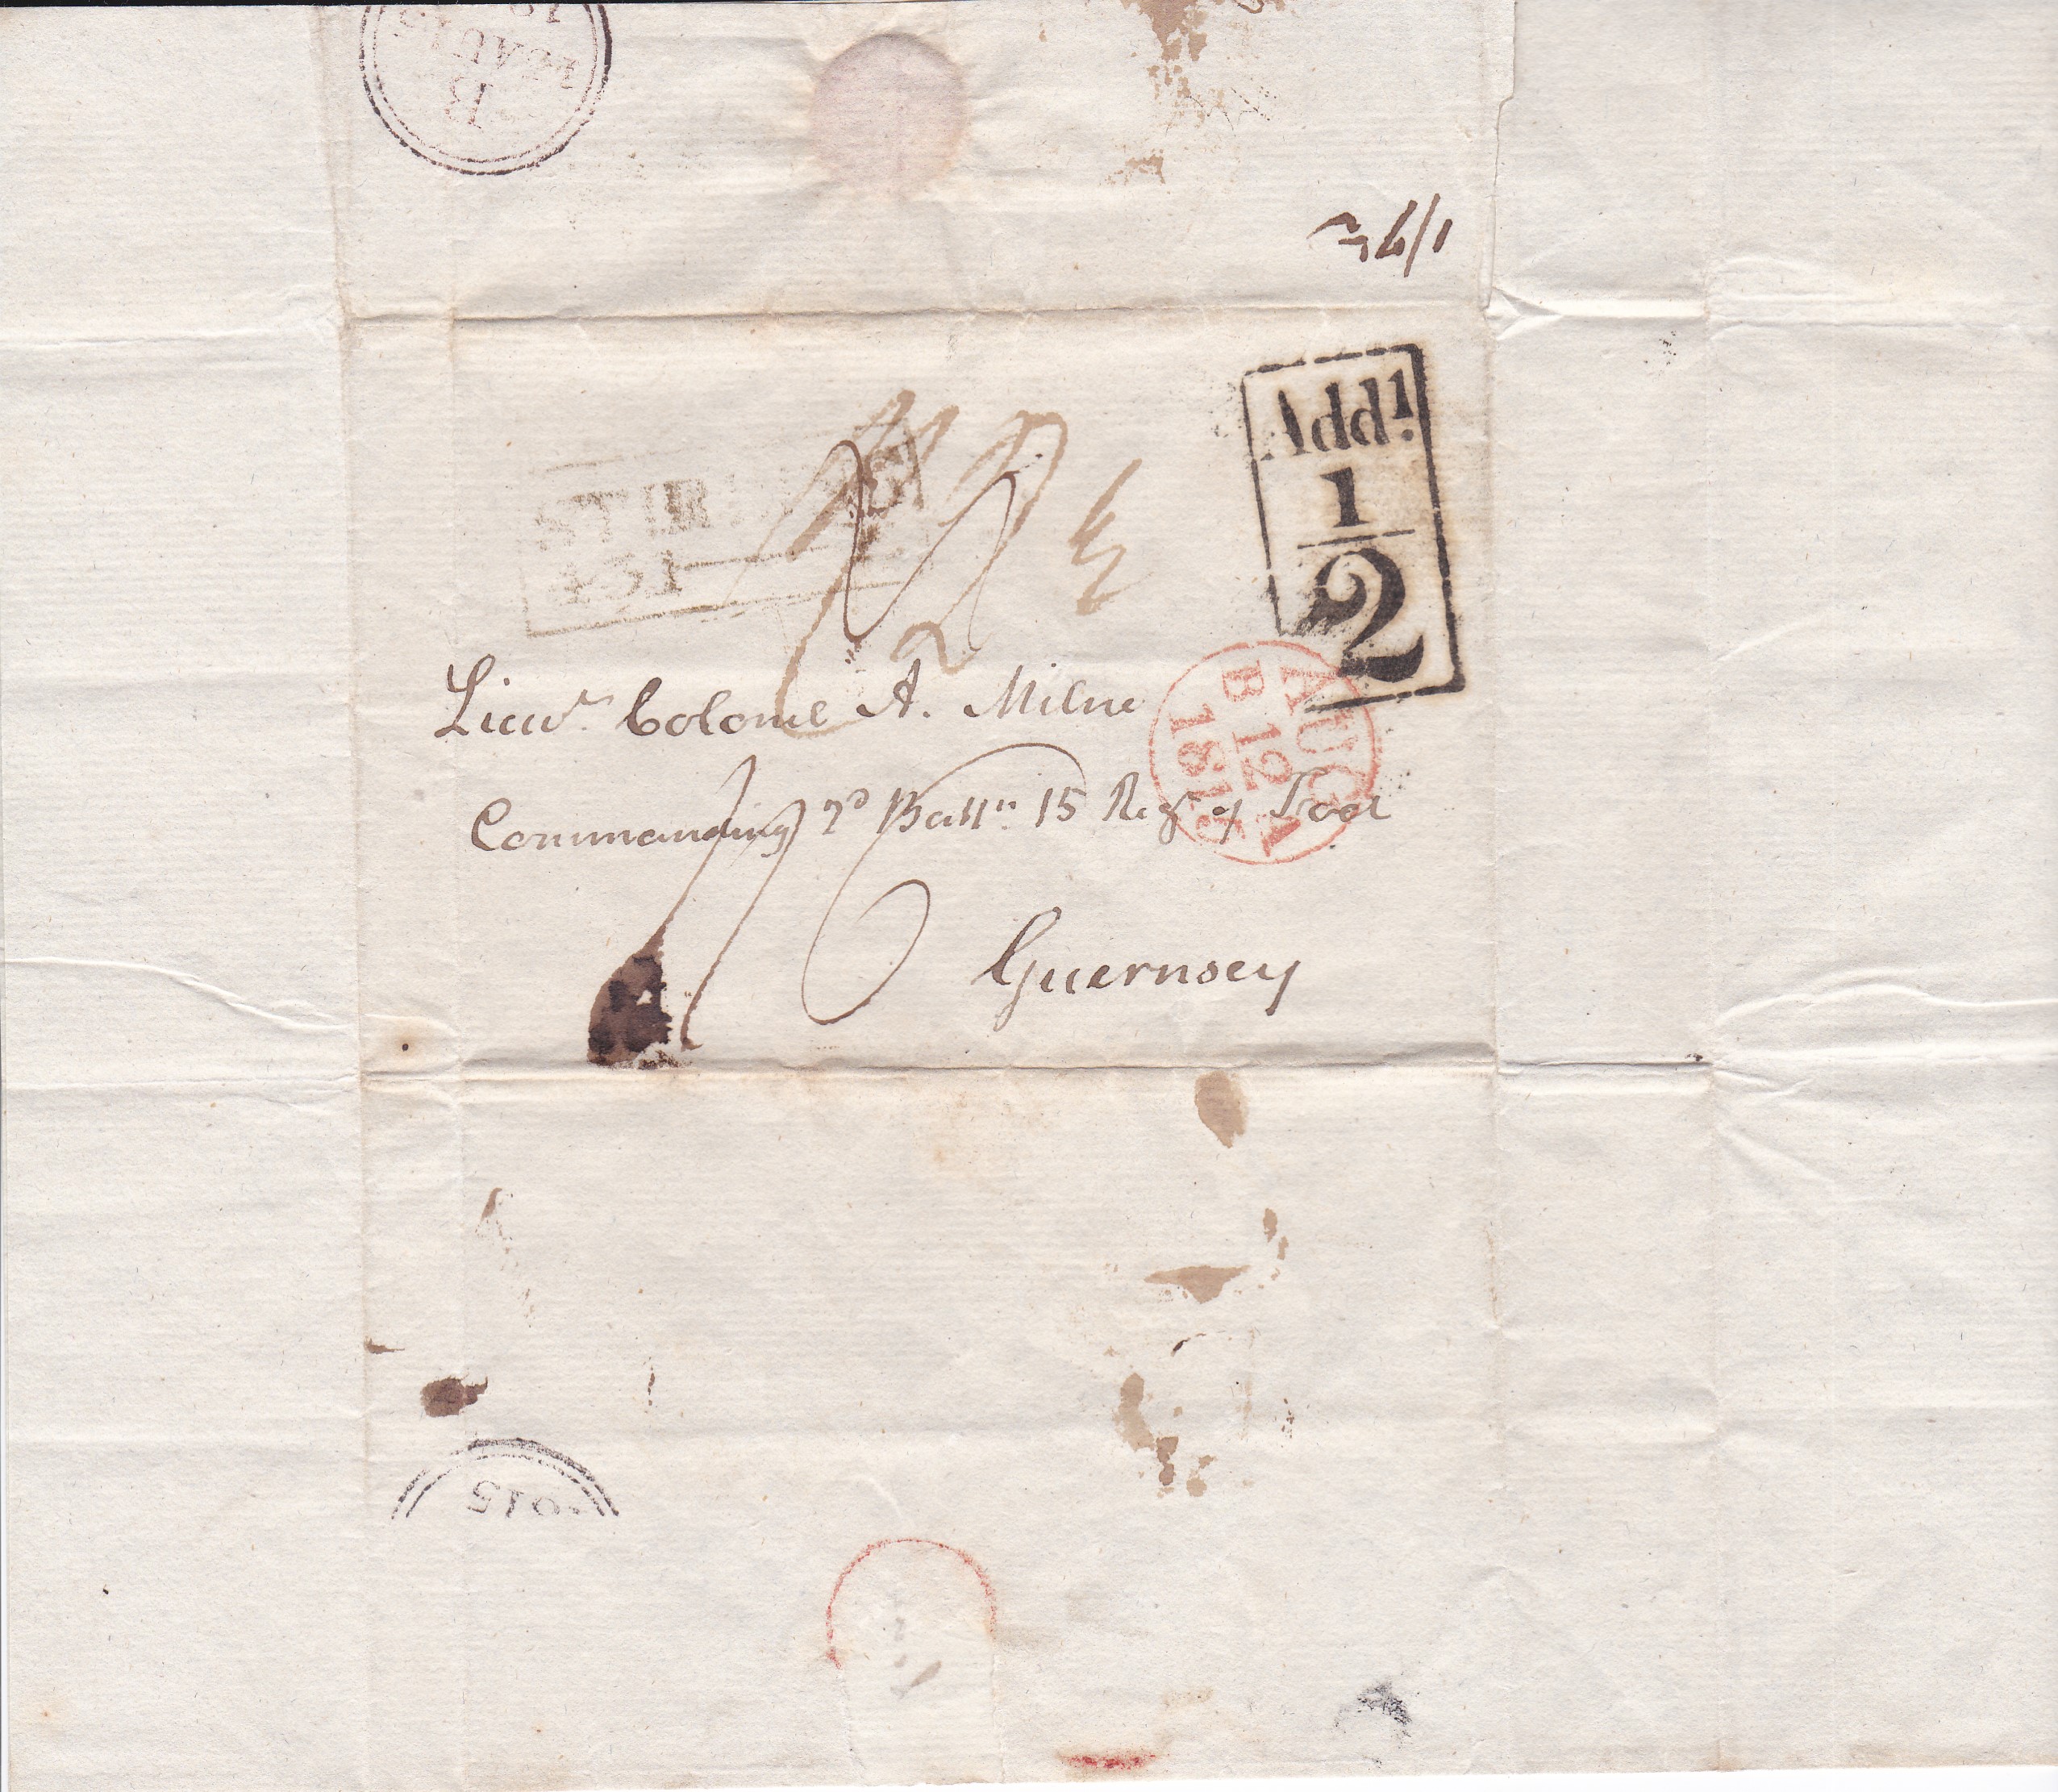 B
1/
Addl
1
2
STIRLING
431
Lieut. Colonel A. Milne
Commanding 2d Battn. 15 Regt of Foot
Guernsey
AUG A
B 12
1815
1815